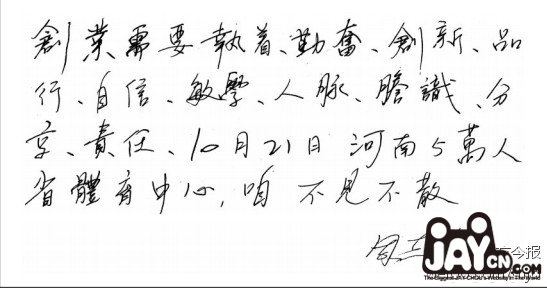 創業需要執着、勤奮、創新、品
行、自信、敏學、人脈、膽識、分
享、責任、10月21日 河南5萬人
省體育中心,咱 不見不散
今报
JAY
CN.COM
The Biggest JAY CHOU's Website in The World